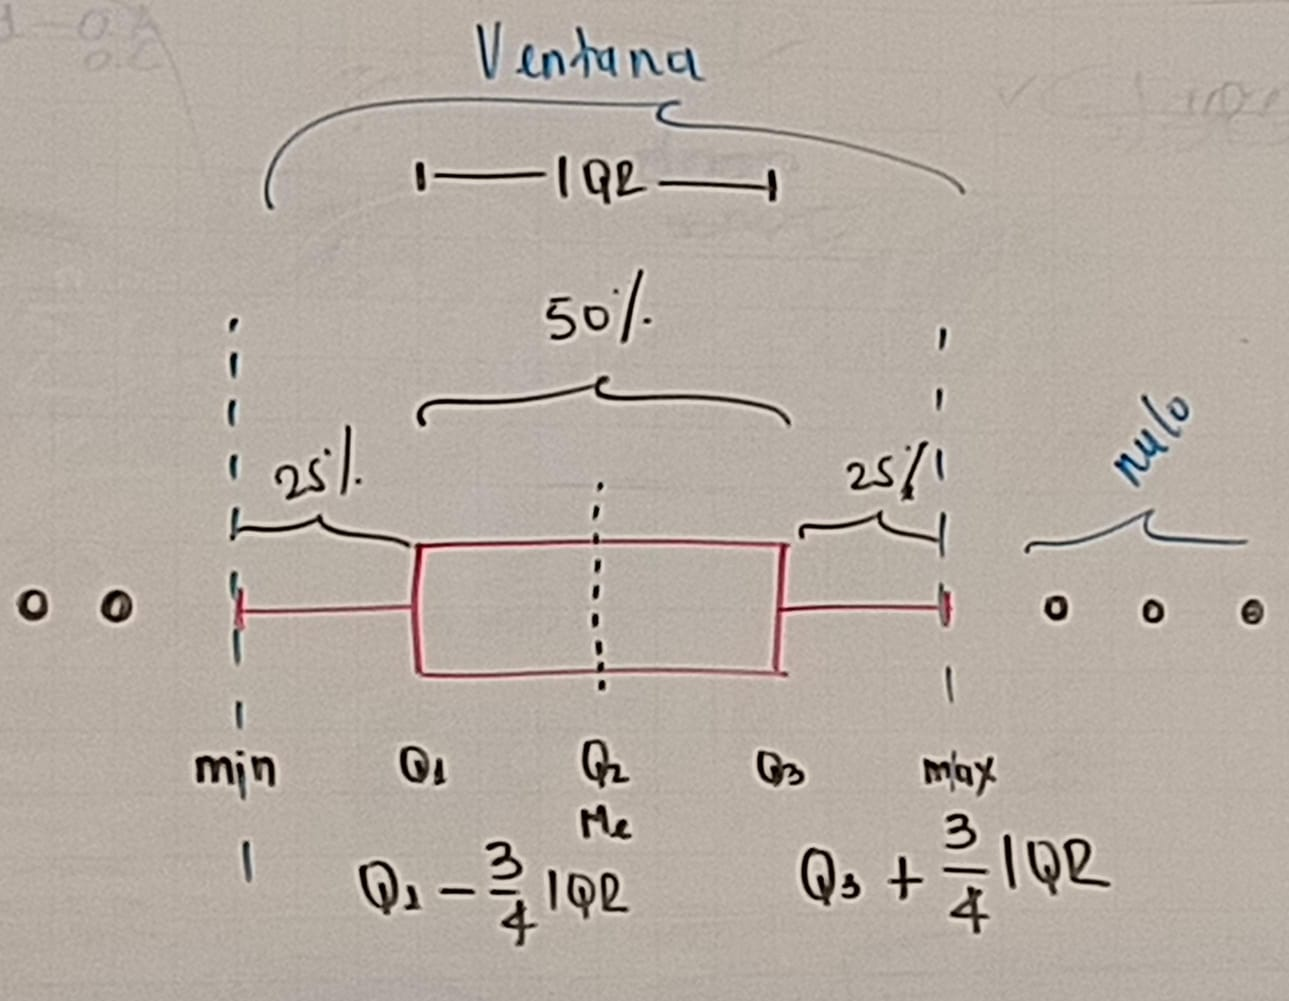 Ventana
IQR
50%
25%
25%
nulo
min
Q1
Q2
Q3
max
Me
Q1 - 3/4 IQR
Q3 + 3/4 IQR